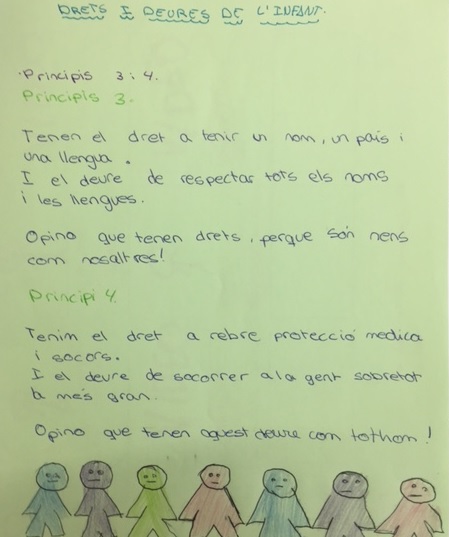 DRETS I DEURES DE L'INFANT.
·Principis 3 i 4.
Principis 3.
Tenen el dret a tenir un nom, un país i
una llengua.
I el deure de respectar tots els noms
i les llengues.
Opino que tenen drets, perque són nens
com nosaltres!
Principi 4.
Tenim el dret a rebre protecció medica
i socors.
I el deure de socorrer a la gent sobretot
la més gran.
Opino que tenen aquest deure com tothom!